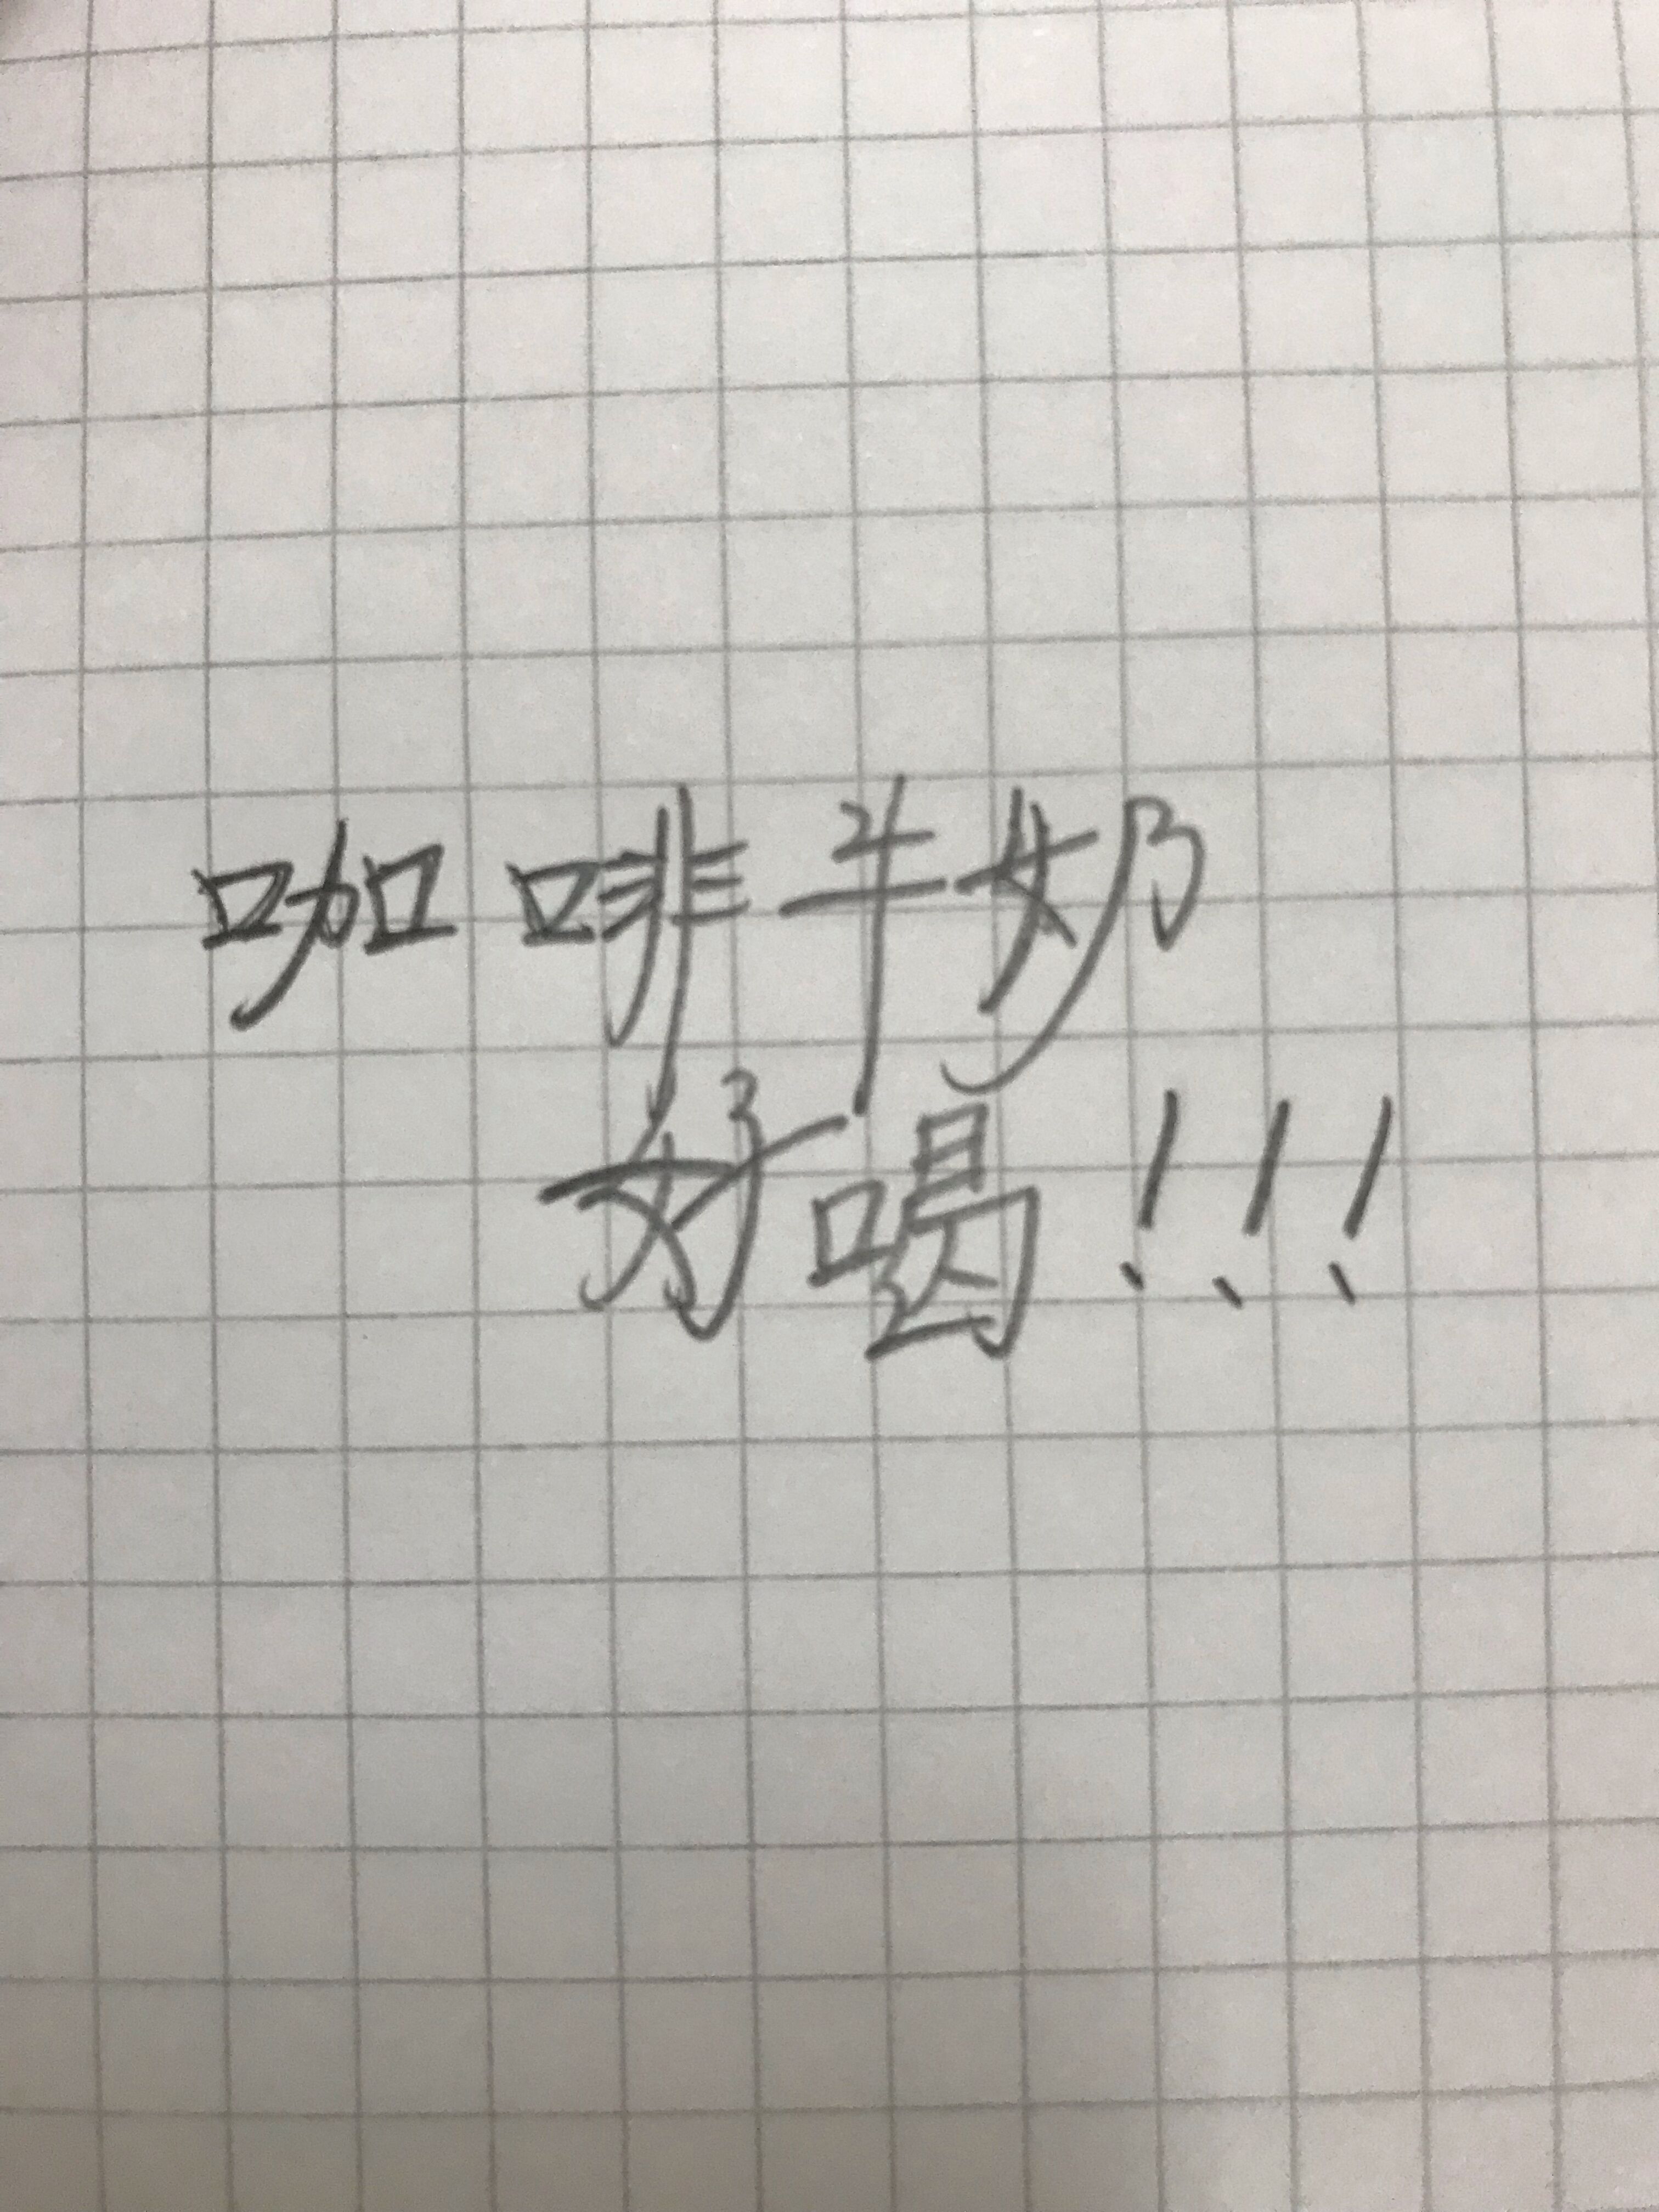 咖啡牛奶
好喝!!!